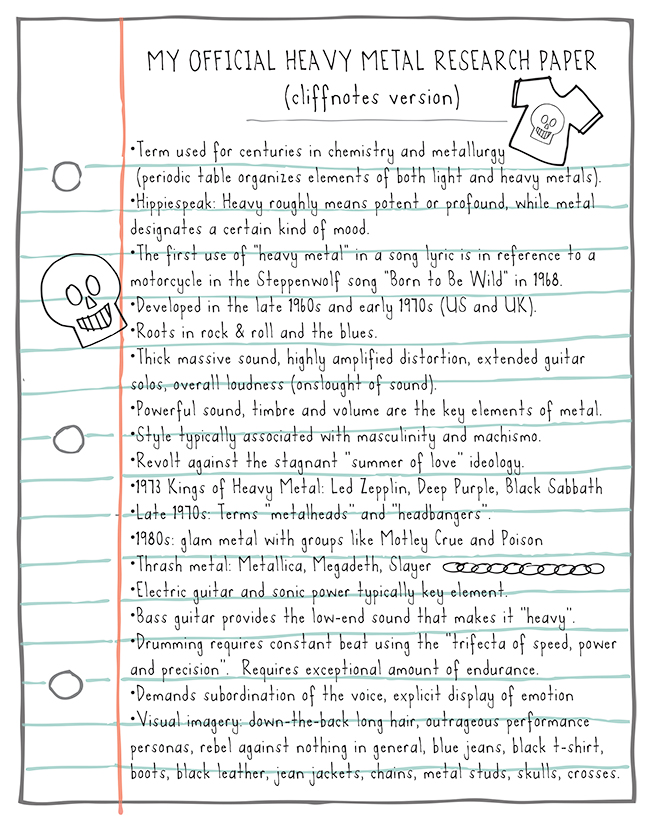 MY OFFICIAL HEAVY METAL RESEARCH PAPER
(cliffnotes version)
•Term used for centuries in chemistry and metallurgy
(periodic table organizes elements of both light and heavy metals).
•Hippiespeak: Heavy roughly means potent or profound, while metal
designates a certain kind of mood.
•The first use of "heavy metal" in a song lyric is in reference to a
motorcycle in the Steppenwolf song "Born to Be Wild" in 1968.
•Developed in the late 1960s and early 1970s (US and UK).
•Roots in rock & roll and the blues.
•Thick massive sound, highly amplified distortion, extended guitar
solos, overall loudness (onslought of sound).
•Powerful sound, timbre and volume are the key elements of metal.
•Style typically associated with masculinity and machismo.
•Revolt against the stagnant "summer of love" ideology.
•1973 Kings of Heavy Metal: Led Zepplin, Deep Purple, Black Sabbath
•Late 1970s: Terms "metalheads" and "headbangers".
•1980s: glam metal with groups like Motley Crue and Poison
•Thrash metal: Metallica, Megadeth, Slayer
•Electric guitar and sonic power typically key element.
•Bass guitar provides the low-end sound that makes it "heavy".
•Drumming requires constant beat using the "trifecta of speed, power
and precision". Requires exceptional amount of endurance.
•Demands subordination of the voice, explicit display of emotion
•Visual imagery: down-the-back long hair, outrageous performance
personas, rebel against nothing in general, blue jeans, black t-shirt,
boots, black leather, jean jackets, chains, metal studs, skulls, crosses.